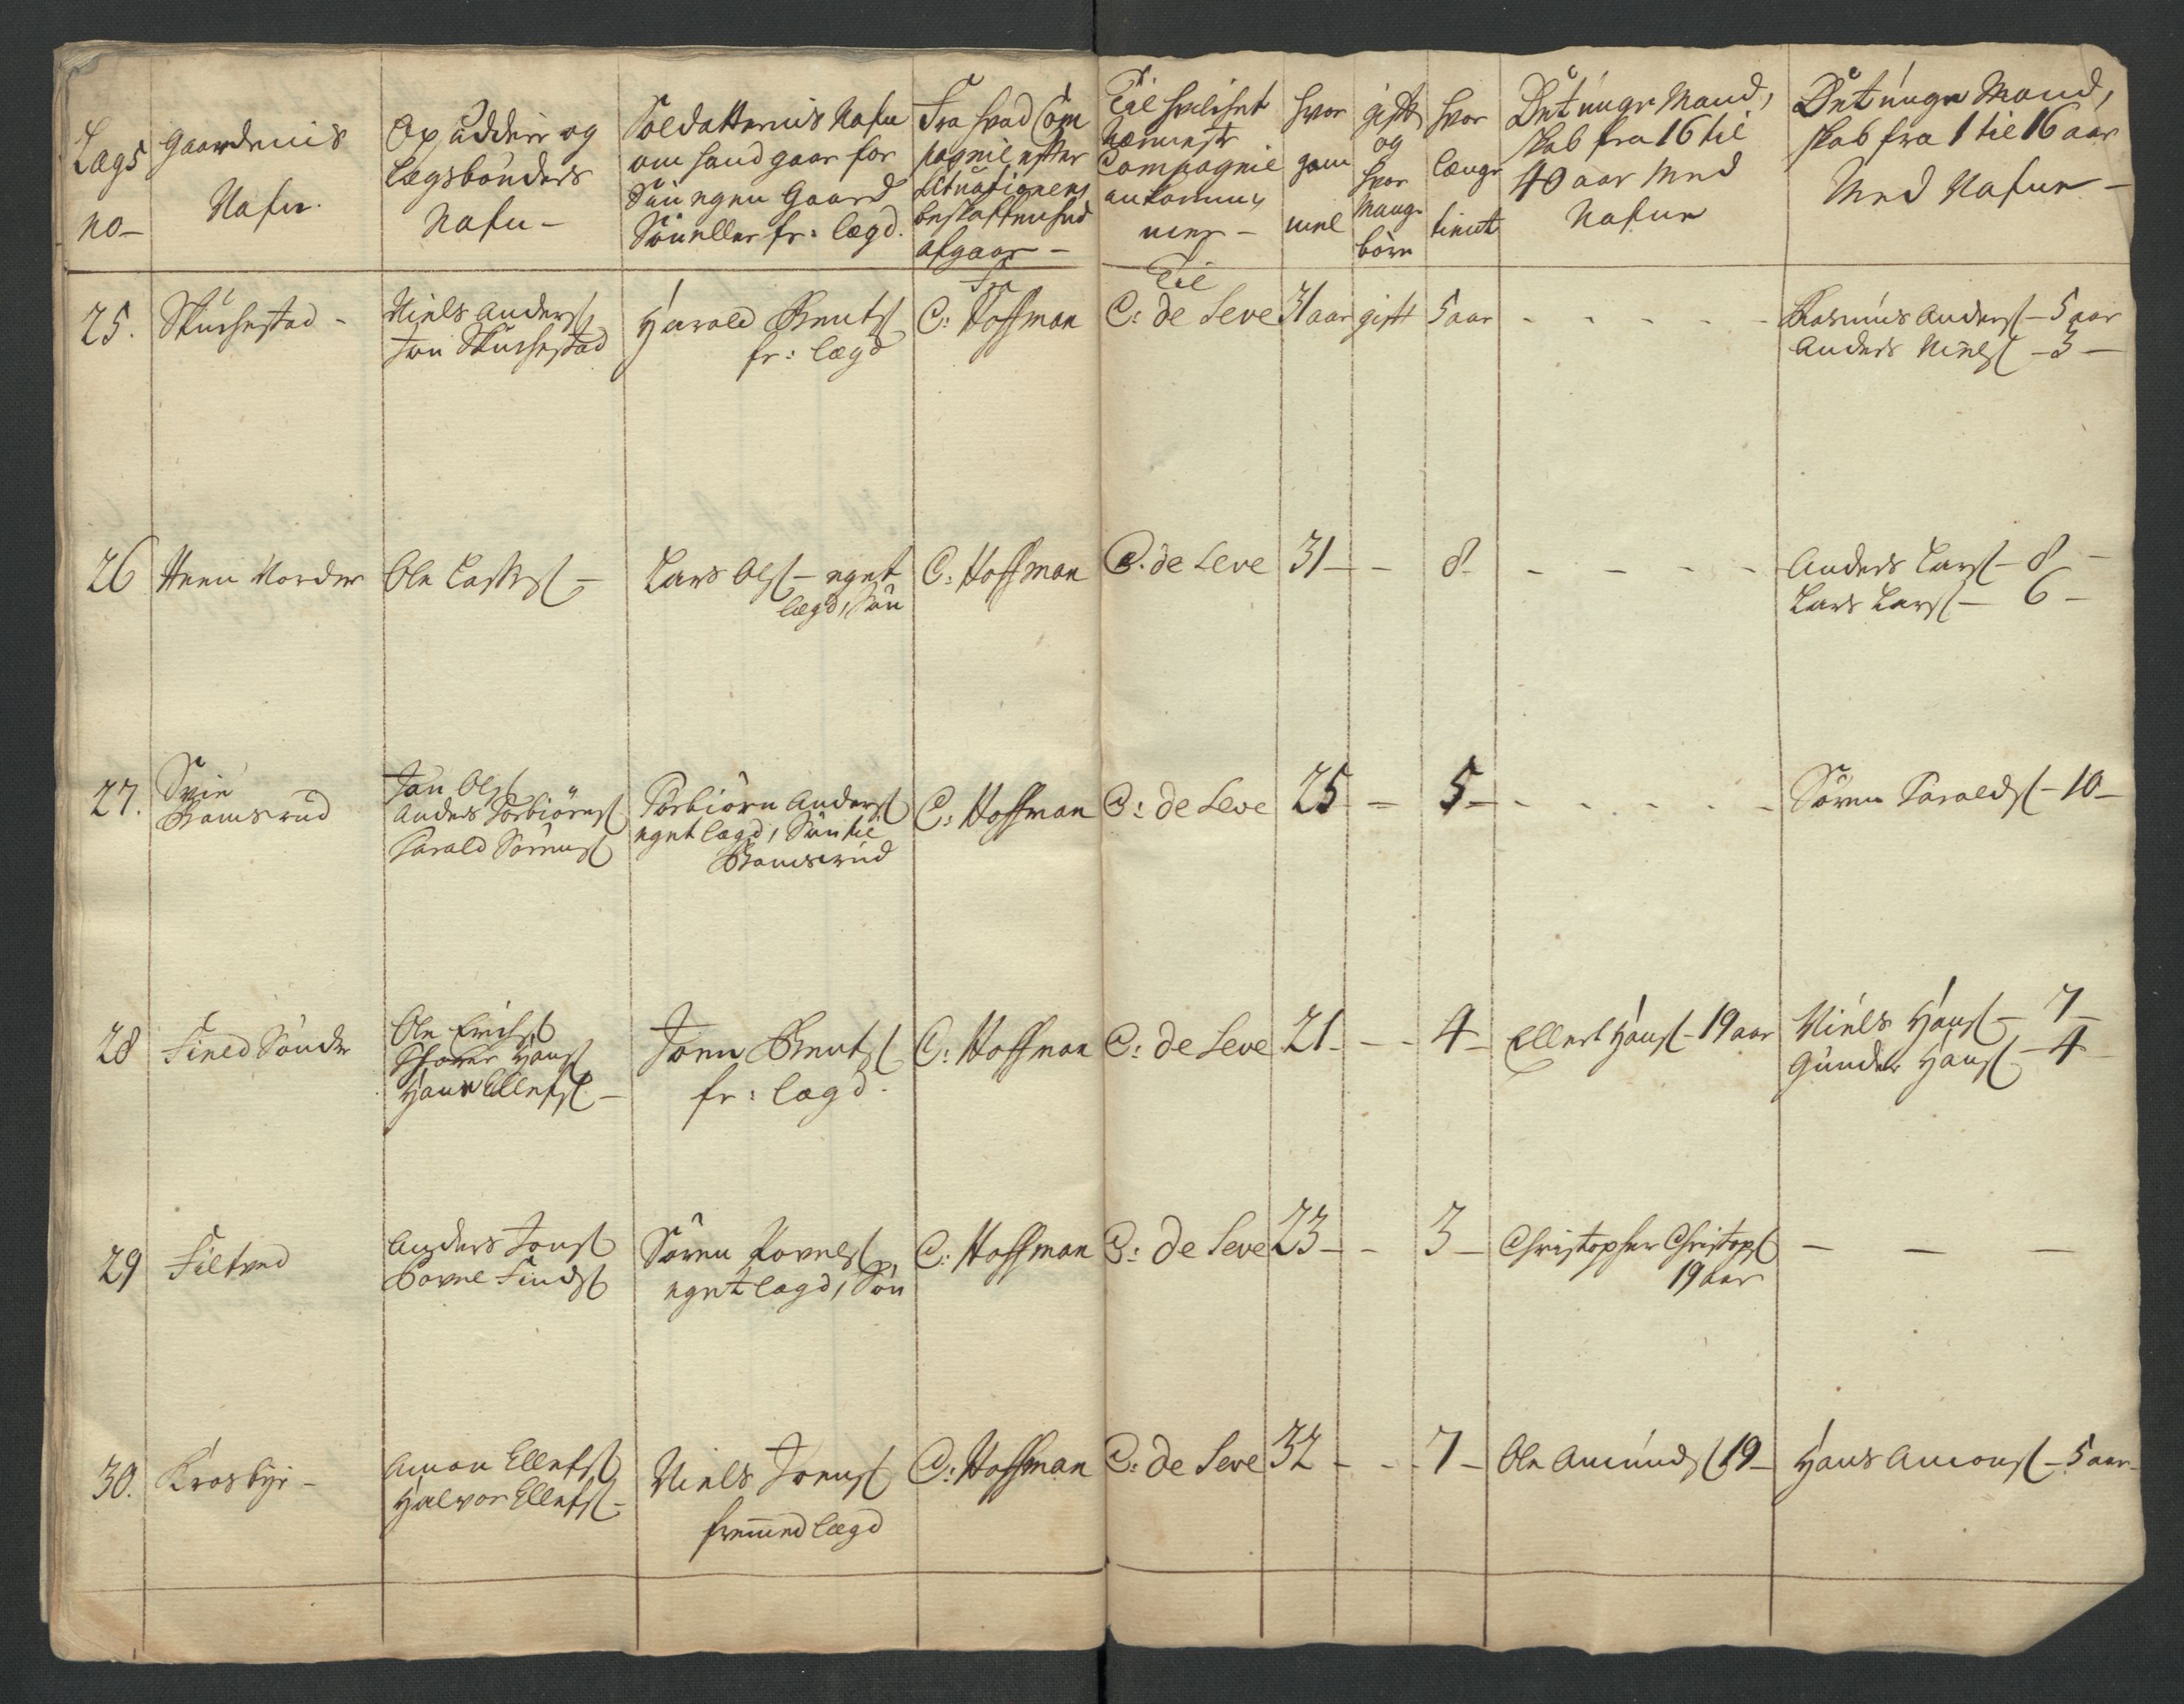 Lægs
no
Gaardenis
Nafn.
Opsidder og
Lægsbönders
Nafn
Soldatternis Nafn
om hand gaar for
Sin egen Gaard
Sön eller fr: lægd.
Fra hvad Com
pagnie efter
Situationens
beskaffenhed
afgaar
Fra
Til hvilchet
nærmeste
Compagnie
ankommer
Til
hvor
gam
mel
gift
og
hvor
mange
börn
hvor
længe
tient
Det unge Mand,
skab fra 16 til
40 aar med
Nafne
Det unge Mand,
skab fra 1 til 16 aar
Med Nafne
25.
Niels Anders
Harald Knuts
fr: lægd
C: Hoffman
C: de Seve
31 aar
gift
5 aar
Rasmus Anders - 5 aar
Anders Niels - 3
26
Nordre
Ole Lars
Lars Ols - eget
lægd, Sön
C: Hoffman
C. de Seve
31
8
Anders Lars - 8
Lars Lars - 6
27.
Ramsrud
Jon Ols
Anders Torbiörns
Tarald Sörens
Torbiörn Anders
eget lægd, Sön til
Ramsrud
C: Hoffman
C: de Seve
25
5
Sören Taralds - 10
28
Söndre
Ole Erichs
Hans
Hans Ellefs
Joen Knuts
fr: lægd.
C: Hoffman
C: de Seve
21
4
Ellert Hans - 19 aar
Niels Hans - 7
Gunder Hans - 4
29
Filtved
Anders Jons
Povel Finds
Sören Povels,
eget lægd, Sön
C: Hoffman
C: de Seve
23
3
Christopher Christops
19 aar
30.
Krosbye
Amon Ellefs
Halvor Ellefs
Niels Joens
fremed lægd
C: Hoffman
C: de Seve
32
7
Ole Amunds 19
Hans Amons - 5 aar